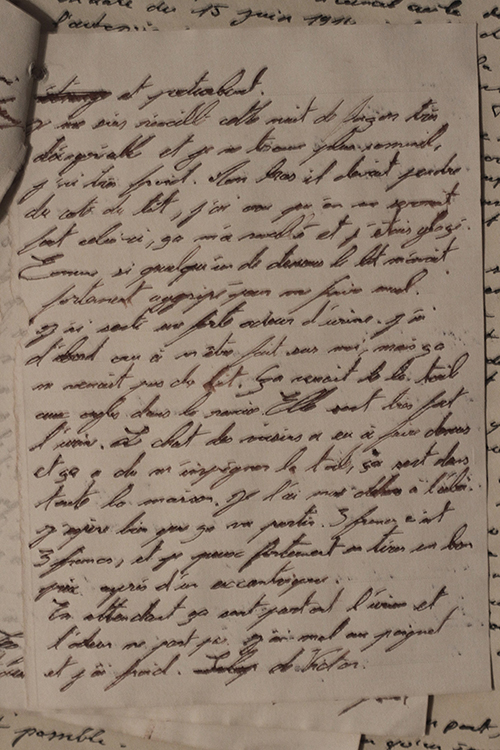 date du 15 juin 19
et perturbant.
Je me suis réveillé cette nuit de façon très
désagréable et je ne trouve plus sommeil,
j'ai très froid. Mon bras il devait pendre
du coté du lit, j'ai cru qu'on en serrant
fort celui-ci, ça m'a réveillé et j'étais glacé.
Comme si quelqu'un de dessous le lit m'avait
fortement aggripé pour me faire mal.
J'ai senti une forte odeur d'urine. J'ai
d'abord cru à m'être fait sur moi, mais ça
ne venait pas du lit. Ça venait de la toile
aux ogles dans le nourice. Elle sent très fort
l'urine. Le chat des voisins a eu à faire dessus
et ça a dû m'imprégner la toile, ça sent dans
toute la maison. Je l'ai mise dehors à l'abri.
J'espère bien que ça va partir. 3 francs c'est
3 francs, et je peux fortement en tirer un bon
prix auprès d'un excentrique.
En attendant ça sent partout l'urine et
l'odeur ne part pas. J'ai mal au poignet
et j'ai froid. de Victor.
possible.